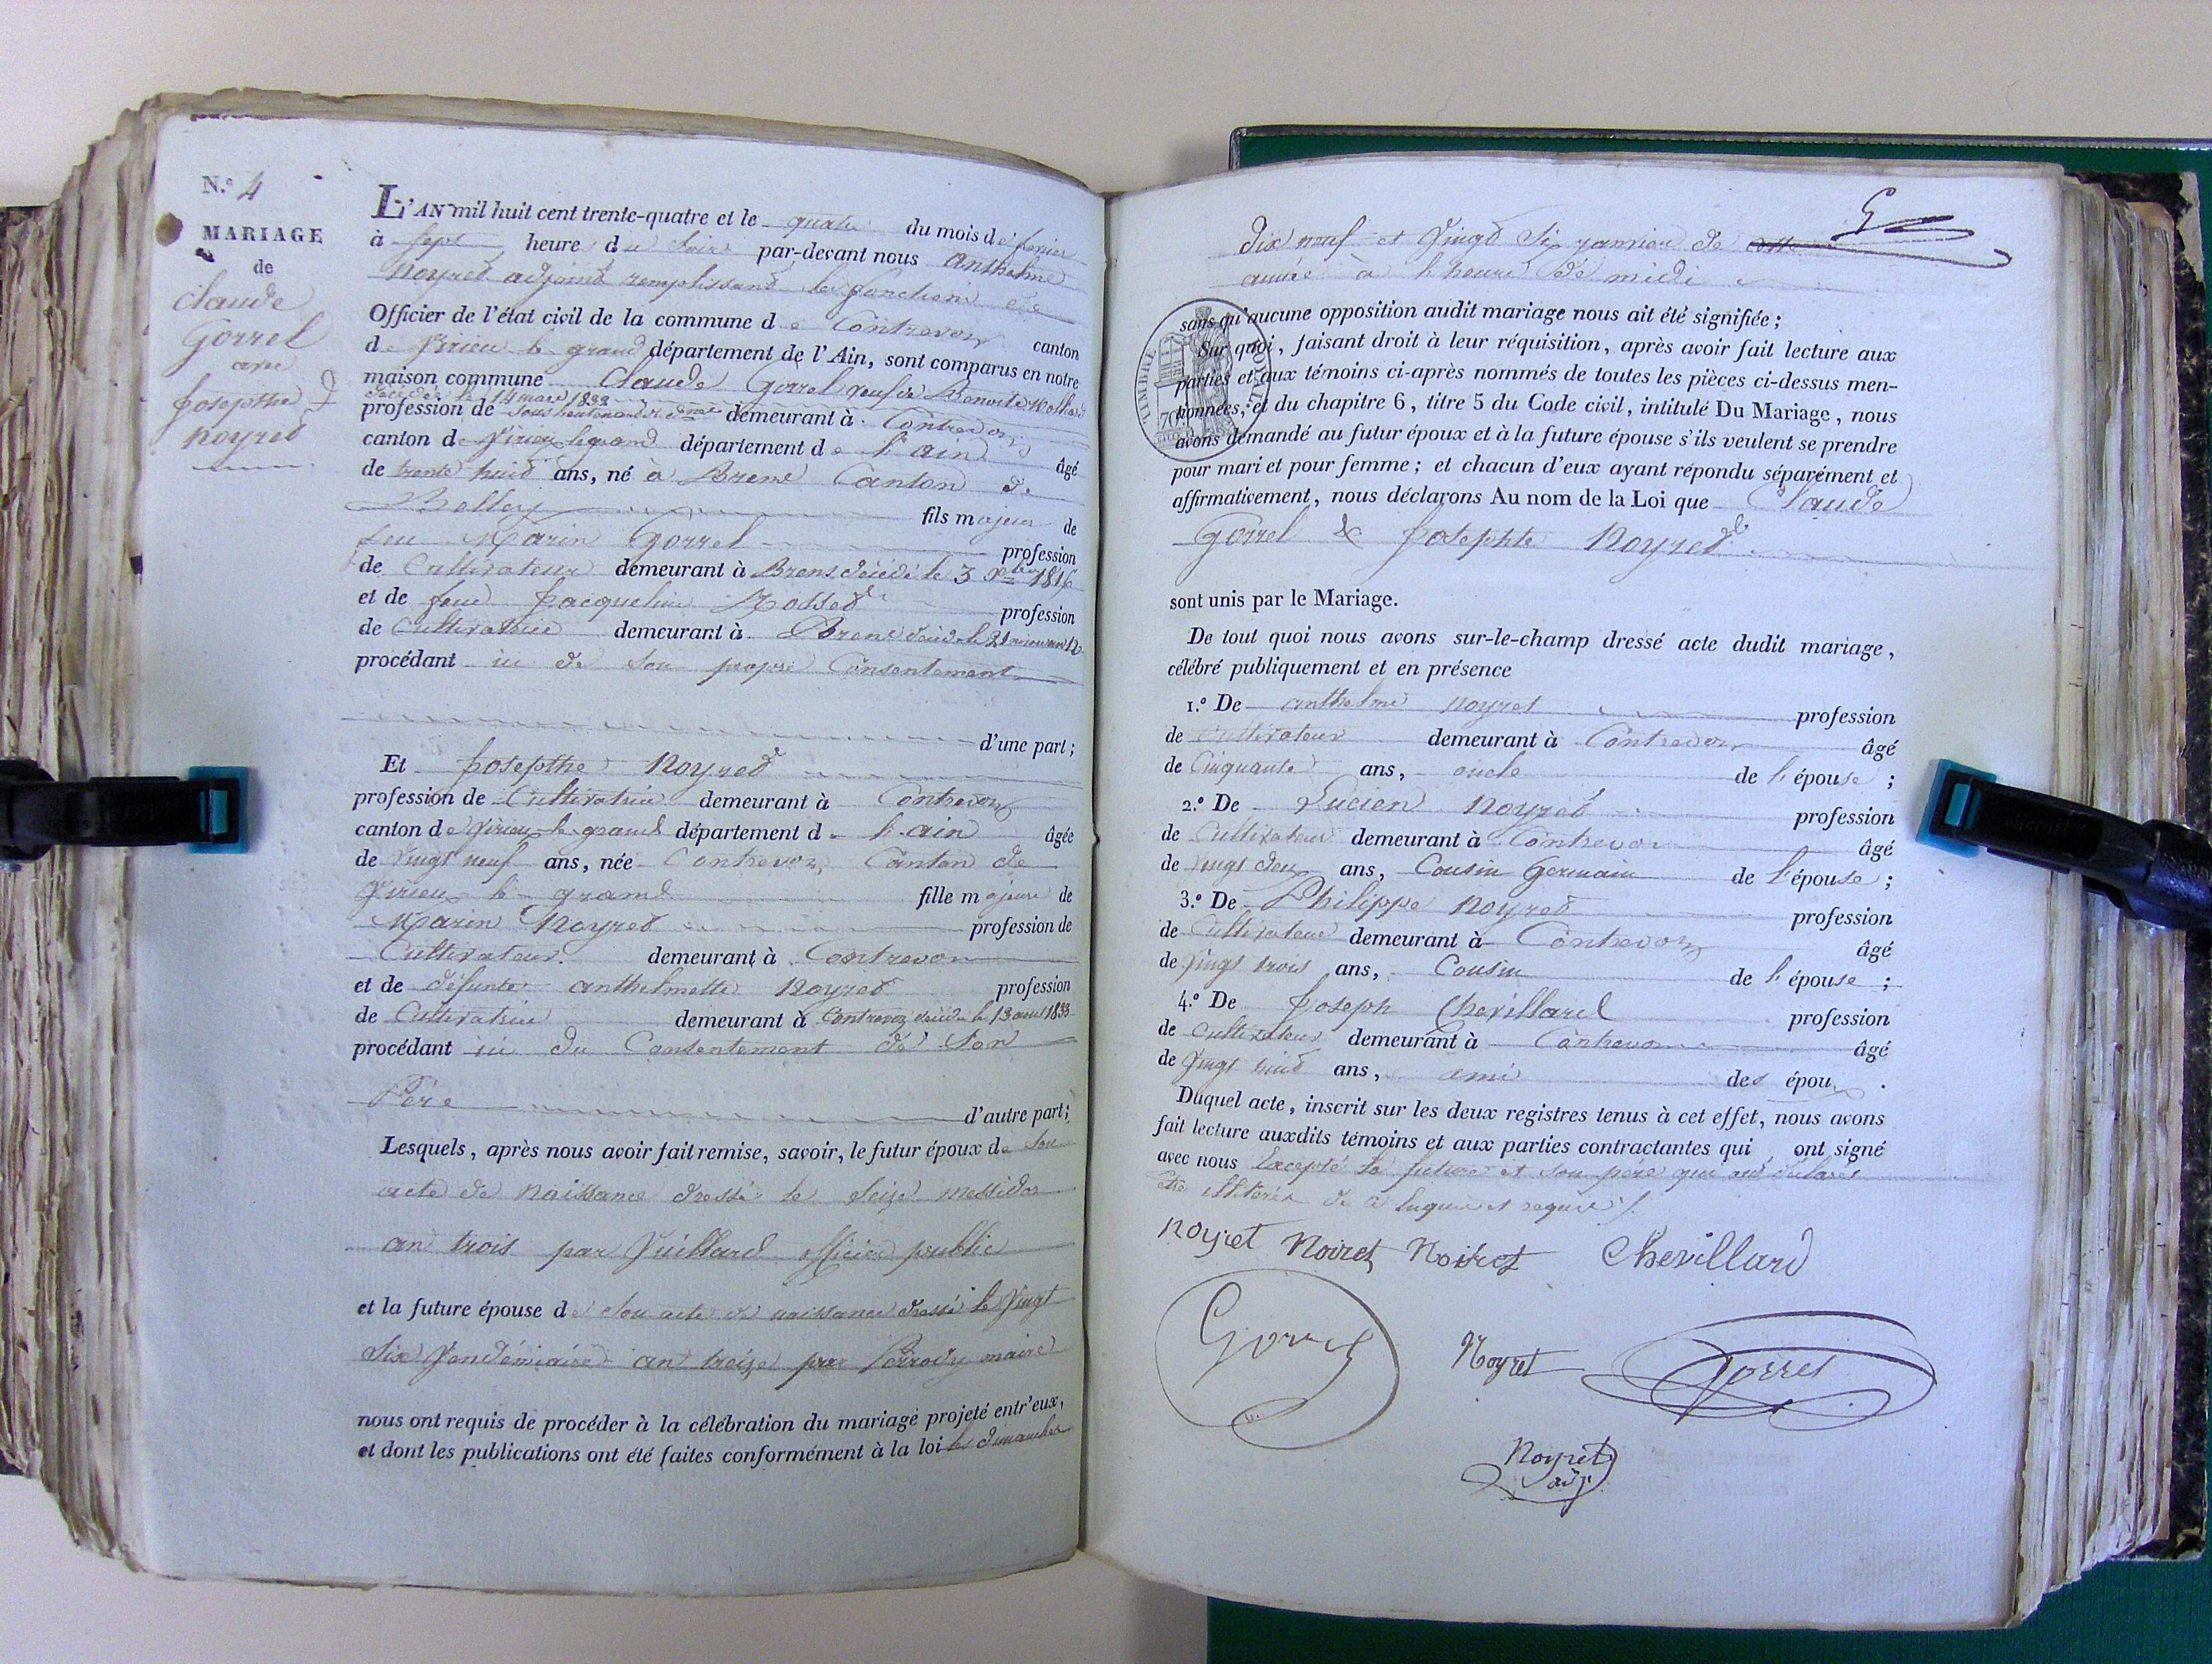 N.° 4
MARIAGE
de
Claude
Gorrel
avec
Josepthe
Noyred
L'AN mil huit cent trente-quatre et le quatre du mois de fevrier
à sept heure du soir par-devant nous Anthelme
Noyred adjoind remplissand les fonctions de
Officier de l'état civil de la commune de Contrevoz canton
de Virieu le grand département de l'Ain, sont comparus en notre
maison commune Claude Gorrel veuf de Benoite
décédée le 14 mars 1833
profession de sous lieutenant demeurant à Contrevoz
canton de Virieu le grand département de l'ain âgé
de trente huid ans, né à Brens Canton de
Belley fils majeur de
feu Marin Gorrel profession
de Cultivateur demeurant à Brens décédé le 3 Xbre 1816
et de feue Jacqueline Rossed profession
de Cultivatrice demeurant à Brens décédée le 21
procédant ici de son propre Consentement
d'une part ;
Et Josepthe Noyred
profession de Cultivatrice demeurant à Contrevoz
canton de Virieu le grand département de l'ain âgée
de vingt neuf ans, née Contrevoz, Canton de
Virieu le grand fille majeure de
Marin Noyred profession de
Cultivateur demeurant à Contrevoz
et de défunte anthelmette Noyred profession
de Cultivatrice demeurant à Contrevoz décédée le 13 aout 1833
procédant ici du Consentement de Son
Père d'autre part ;
Lesquels, après nous avoir fait remise, savoir, le futur époux de son
acte de naissance dressé le seize messidor
an trois par Juillard officier public
et la future épouse de son acte de naissance dressé le vingt
six Vendémiaire an treize par Perrody maire
nous ont requis de procéder à la célébration du mariage projeté entr'eux,
et dont les publications ont été faites conformément à la loi les dimanches
dix neuf et vingt six janvier de cette
année à l'heure de midi
sans qu'aucune opposition audit mariage nous ait été signifiée ;
Sur quoi, faisant droit à leur réquisition, après avoir fait lecture aux
parties et aux témoins ci-après nommés de toutes les pièces ci-dessus men-
tionnées, et du chapitre 6, titre 5 du Code civil, intitulé Du Mariage, nous
avons demandé au futur époux et à la future épouse s'ils veulent se prendre
pour mari et pour femme ; et chacun d'eux ayant répondu séparément et
affirmativement, nous déclarons Au nom de la Loi que Claude
Gorrel & Josephte Noyred
sont unis par le Mariage.
De tout quoi nous avons sur-le-champ dressé acte dudit mariage,
célébré publiquement et en présence
1.° De anthelme noyret profession
de cultivateur demeurant à Contrevoz âgé
de Cinquante ans, oncle de l'épouse ;
2.° De Lucien Noyred profession
de Cultivateur demeurant à Contrevoz âgé
de vingt deux ans, Cousin Germain de l'épouse ;
3.° De Philippe Noyred profession
de Cultivateur demeurant à Contrevoz âgé
de vingt trois ans, Cousin de l'épouse ;
4.° De Joseph Chevillard profession
de cultivateur demeurant à Contrevoz âgé
de vingt huid ans, ami des époux.
Duquel acte, inscrit sur les deux registres tenus à cet effet, nous avons
fait lecture auxdits témoins et aux parties contractantes qui ont signé
avec nous Excepté la future et son père qui ond déclarés
être illitérés de ce enquis et requis ./.
noyret Noiret Noiret Chevillard
Gorrel Noyret Gorrel
Noyret
adj.